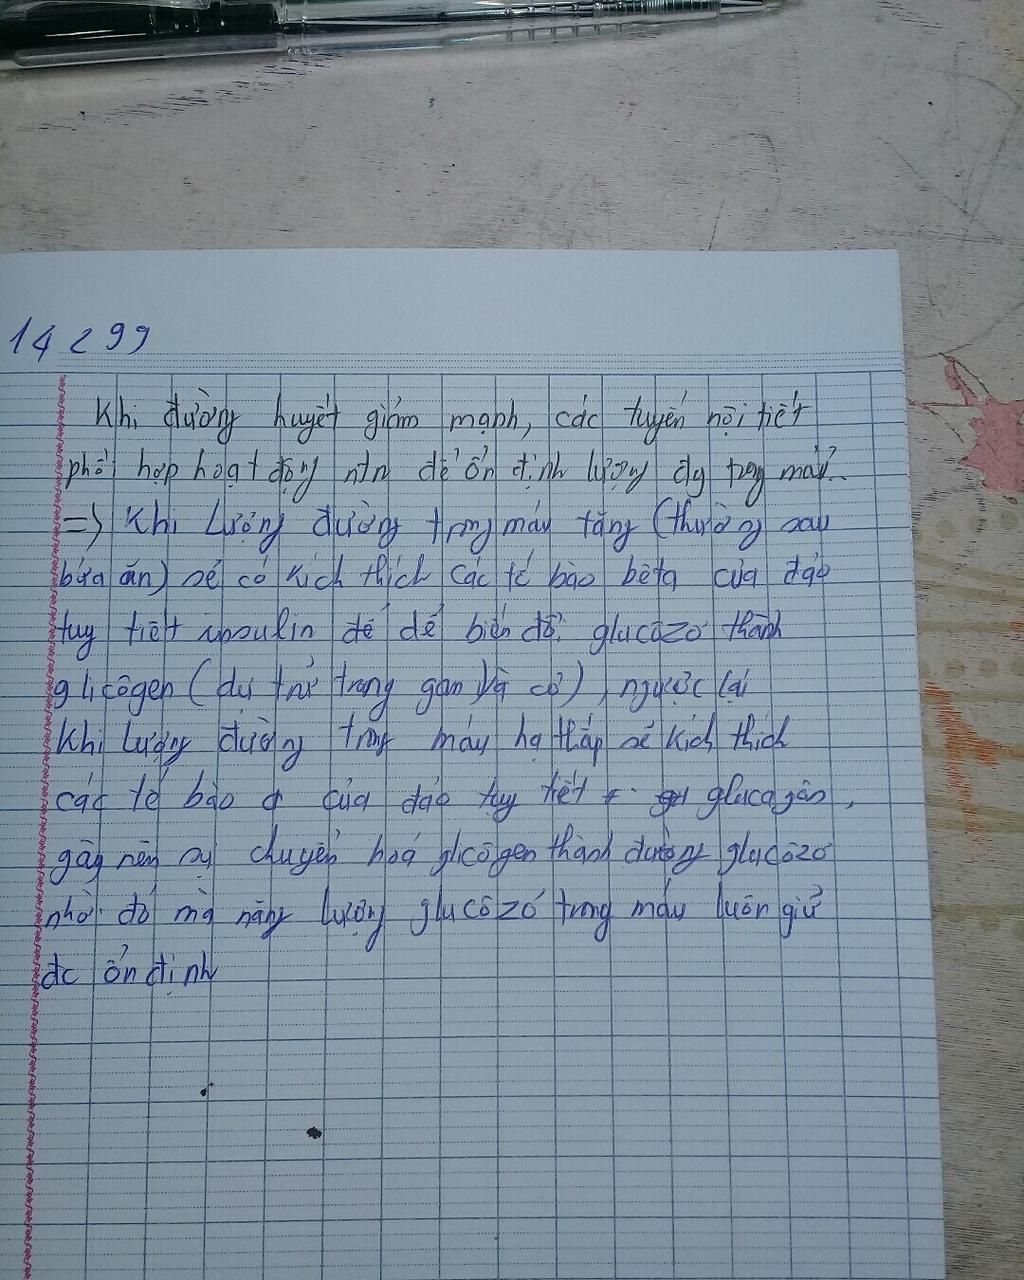 14299
Khi đường huyết giảm mạnh, các tuyến nội tiết
phối hợp hoạt động ntn để ổn định lượng đg trong máu?
=> Khi lượng đường trong máu tăng (thường sau
bữa ăn) sẽ có kích thích các tế bào bêta của đảo
tụy tiết insulin để để biến đổi glucôzơ thành
glicôgen (dự trữ trong gan và cơ), ngược lại
Khi lượng đường trong máu hạ thấp sẽ kích thích
các tế bào α của đảo tụy tiết glucagôn,
gây nên sự chuyển hoá glicôgen thành đường glucôzơ
nhờ đó mà năng lượng glucôzơ trong máu luôn giữ
đc ổn định